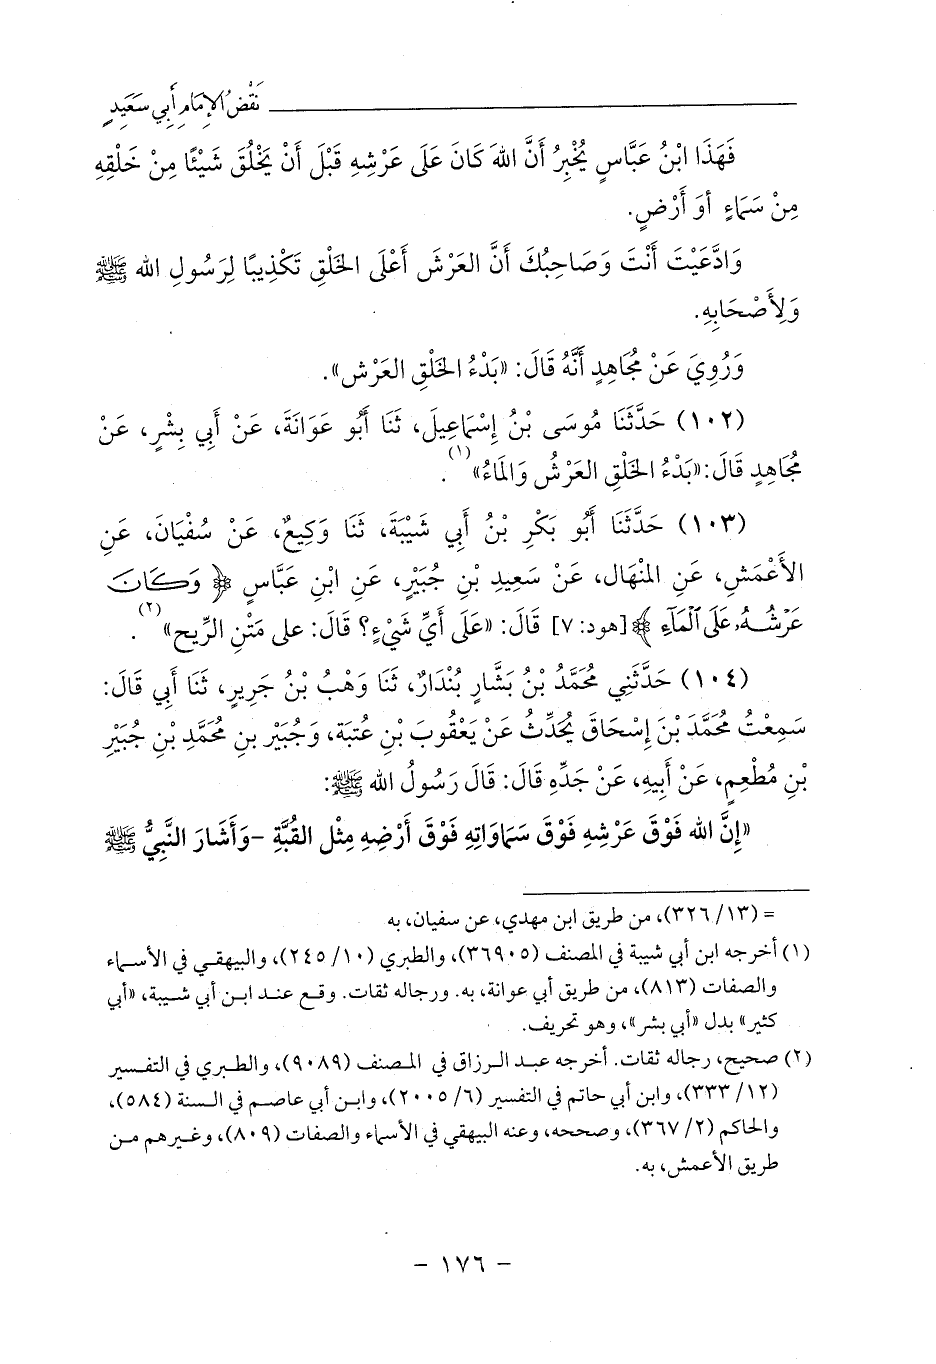 نَقْضُ الإِمَامِ أَبِي سَعِيدٍ
فَهَذَا ابْنُ عَبَّاسٍ يُخْبِرُ أَنَّ اللهَ كَانَ عَلَى عَرْشِهِ قَبْلَ أَنْ يَخْلُقَ شَيْئًا مِنْ خَلْقِهِ
مِنْ سَمَاءٍ أوَ أَرْضٍ.
وَادَّعَيْتَ أَنْتَ وَصَاحِبُكَ أَنَّ العَرْشَ أَعْلَى الخَلْقِ تَكْذِيبًا لِرَسُولِ الله ﷺ
وَلِأَصْحَابِهِ.
وَرُوِيَ عَنْ مُجَاهِدٍ أَنَّهُ قَالَ: «بَدْءُ الخَلْقِ العَرْش».
(١٠٢) حَدَّثَنَا مُوسَى بْنُ إِسْمَاعِيلَ، ثَنَا أَبُو عَوَانَةَ، عَنْ أَبِي بِشْرٍ، عَنْ
مُجَاهِدٍ قَالَ:«بَدْءُ الخَلْقِ العَرْشُ وَالمَاءُ»(١).
(١٠٣) حَدَّثَنَا أَبُو بَكْرِ بْنُ أَبِي شَيْبَةَ، ثَنَا وَكِيعٌ، عَنْ سُفْيَانَ، عَنِ
الأَعْمَشِ، عَنِ المِنْهَال، عَنْ سَعِيدِ بْنِ جُبَيْرٍ، عَنِ ابْنِ عَبَّاسٍ ﴿ وَكَانَ
عَرْشُهُۥ عَلَى ٱلْمَآءِ ﴾[هود: ٧] قَالَ: «عَلَى أَيِّ شَيْءٍ؟ قَالَ: على مَتْنِ الرِّيح»(٢).
(١٠٤) حَدَّثَنِي مُحَمَّدُ بْنُ بَشَّارٍ بُنْدَارٌ، ثَنَا وَهْبُ بْنُ جَرِيرٍ، ثَنَا أَبِي قَالَ:
سَمِعْتُ مُحَمَّدَ بْنَ إِسْحَاقَ يُحَدِّثُ عَنْ يَعْقُوبَ بْنِ عُتبَة، وَجُبَيْر بنِ مُحَمَّدِ بْنِ جُبَيْرِ
بْنِ مُطْعِمٍ، عَنْ أَبِيهِ، عَنْ جَدِّهِ قَالَ: قَالَ رَسُولُ الله ﷺ:
«إِنَّ الله فَوْقَ عَرْشِهِ فَوْقَ سَمَاوَاتِهِ فَوْقَ أَرْضِهِ مِثْل القُبَّةِ -وَأَشَارَ النَّبِيُّ ﷺ
= (١٣/ ٣٢٦)، من طريق ابن مهدي، عن سفيان، به
(١) أخرجه ابن أبي شيبة في المصنف (٣٦٩٠٥)، والطبري (١٠/ ٢٤٥)، والبيهقي في الأسماء
والصفات (٨١٣)، من طريق أبي عوانة، به. ورجاله ثقات. وقع عند ابن أبي شيبة، «أبي
كثير» بدل «أبي بشر»، وهو تحريف.
(٢) صحيح، رجاله ثقات. أخرجه عبد الرزاق في المصنف (٩٠٨٩)، والطبري في التفسير
(١٢/ ٣٣٣)، وابن أبي حاتم في التفسير (٦/ ٢٠٠٥)، وابن أبي عاصم في السنة (٥٨٤)،
والحاكم (٢/ ٣٦٧)، وصححه، وعنه البيهقي في الأسماء والصفات (٨٠٩)، وغيرهم من
طريق الأعمش، به.
- ١٧٦ -